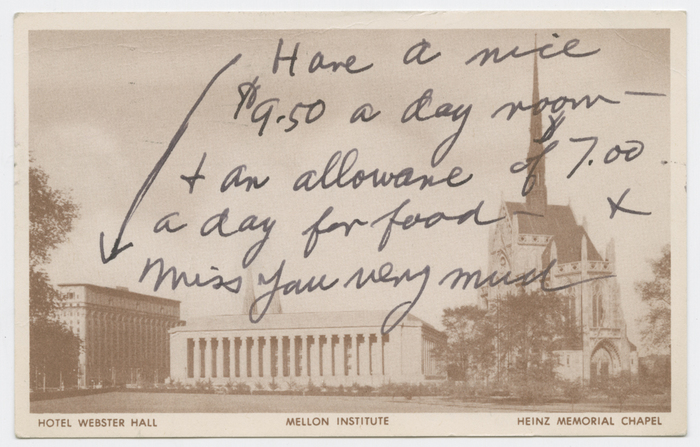 Have a nice
$9.50 a day room —
+ an allowane of $7.00
a day for food — x
Miss you very much
HOTEL WEBSTER HALL MELLON INSTITUTE HEINZ MEMORIAL CHAPEL